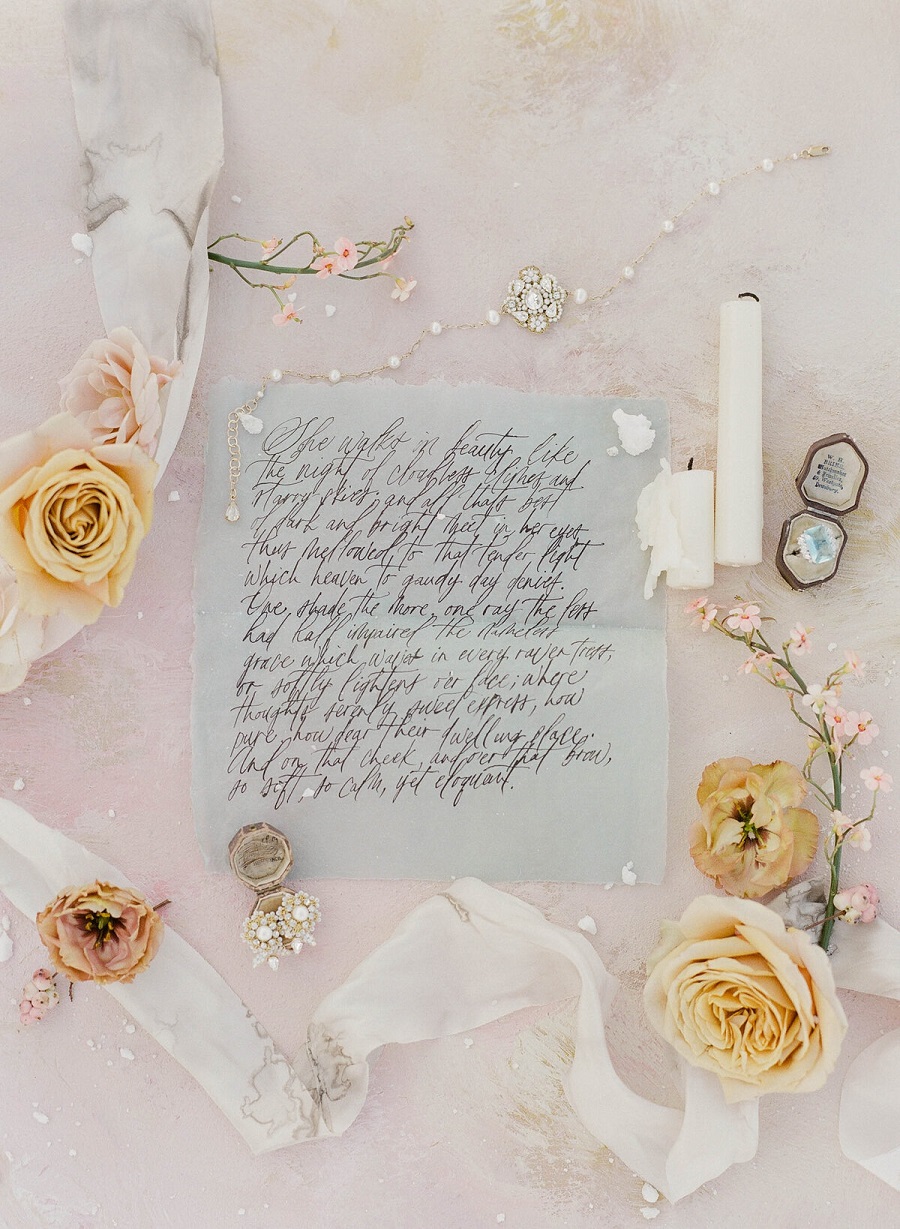 She walks in beauty, like
the night of cloudless climes and
starry skies; and all thats best
of dark and bright meet in her eyes
thus mellowed to that tender light
which heaven to gaudy day denies.
One shade the more, one ray the less
had half impaired the nameless
grace which waves in every raven tress,
or softly lightens o'er her face; where
thoughts serenely sweet express, how
pure, how dear their dwelling place.
And on that cheek, and o'er that brow,
so soft, so calm, yet eloquent.